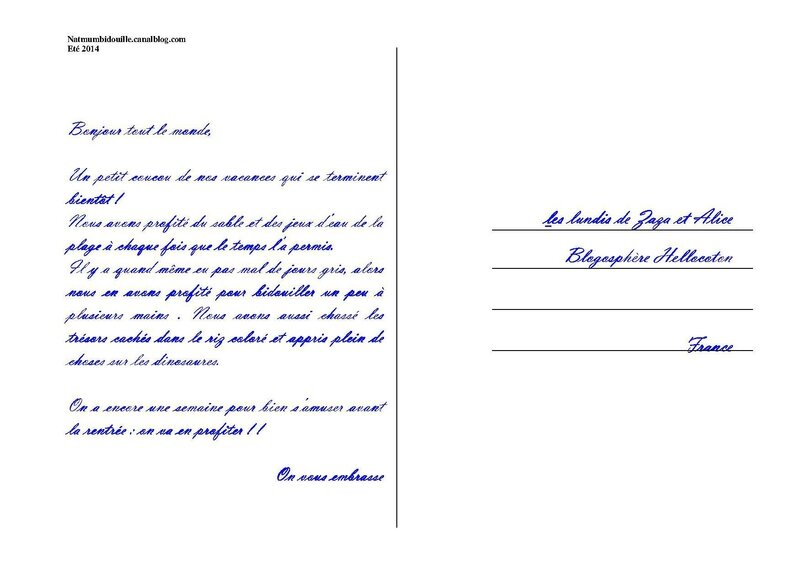 Natmumbidouille.canalblog.com
Eté 2014
Bonjour tout le monde,
Un petit coucou de nos vacances qui se terminent
bientôt !
Nous avons profité du sable et des jeux d'eau de la
plage à chaque fois que le temps l'a permis.
Il y a quand même eu pas mal de jours gris, alors
nous en avons profité pour bidouiller un peu à
plusieurs mains . Nous avons aussi chassé les
trésors cachés dans le riz coloré et appris plein de
choses sur les dinosaures.
On a encore une semaine pour bien s'amuser avant
la rentrée : on va en profiter ! !
On vous embrasse
les lundis de Zaza et Alice
Blogosphère Hellocoton
France